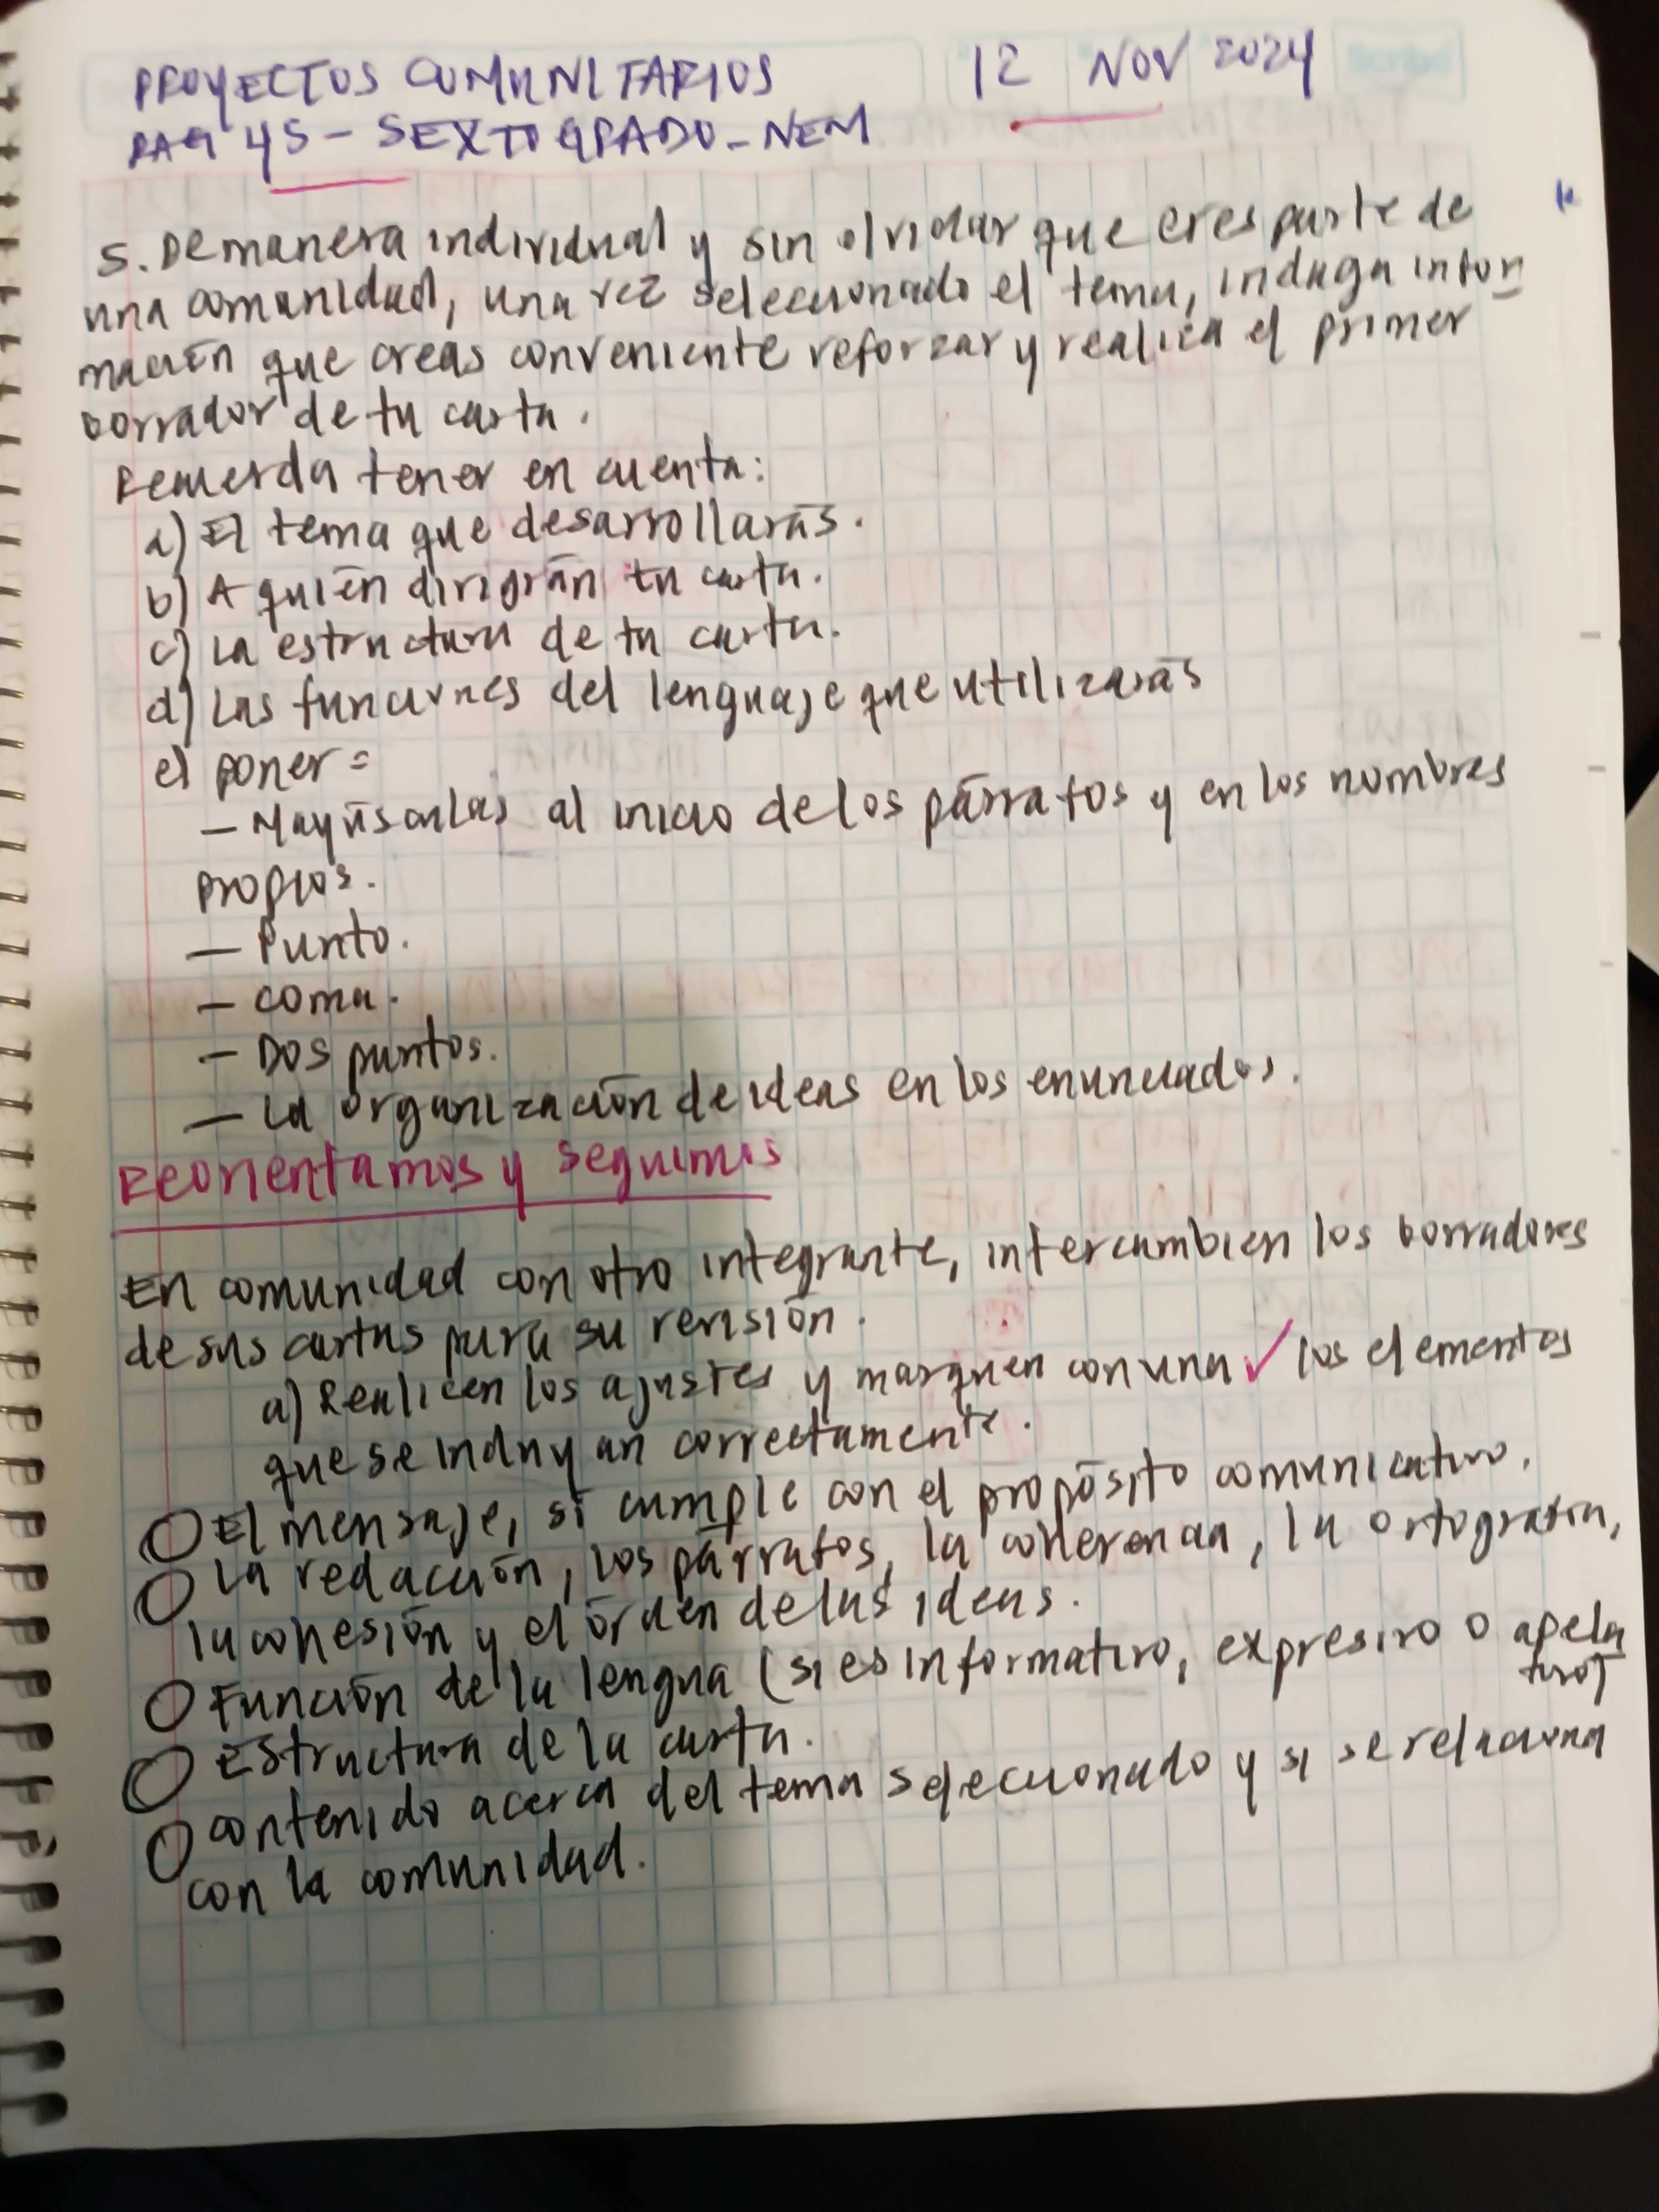 PROYECTOS COMUNITARIOS 12 NOV 2024
PAG 45 - SEXTO GRADO - NEM
5. De manera individual y sin olvidar que eres parte de
una comunidad, una vez seleccionado el tema, indaga infor
mación que creas conveniente reforzar y realiza el primer
borrador de tu carta.
Recuerda tener en cuenta:
a) El tema que desarrollarás.
b) A quién dirigirán tu carta.
c) La estructura de tu carta.
d) Las funciones del lenguaje que utilizarás
e) poner =
- Mayúsculas al inicio de los párrafos y en los nombres
propios.
- Punto.
- Coma.
- Dos puntos.
- La organización de ideas en los enunciados.
Reorientamos y seguimos
En comunidad con otro integrante, intercambien los borradores
de sus cartas para su revisión.
a) Realicen los ajustes y marquen con una ✓ los elementos
que se incluyan correctamente.
O El mensaje, sí cumple con el propósito comunicativo.
O La redacción, los párrafos, la coherencia, la ortografía,
la cohesión y el órden de las ideas.
O Función de la lengua (si es informativo, expresivo o apela
tivo)
O Estructura de la carta.
O Contenido acerca del tema seleccionado y si se relaciona
con la comunidad.